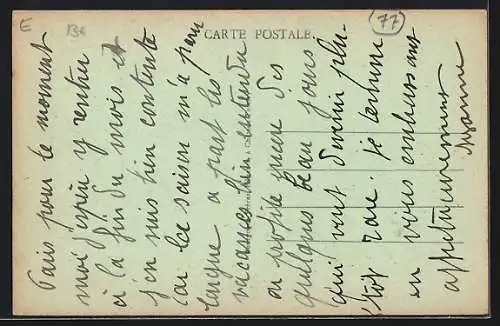 E
136
CARTE POSTALE
77
Paris pour le moment
moi j'espère y rentrer
à la fin du mois et
j'en suis bien contente
car ce saison m'a paru
longue a part les
vacances bien entendu
on profite guere des
quelques beau jours
qui vont devenir plu-
tôt rare. Je termine
en vous embrassant
affectueusement
Suzanne